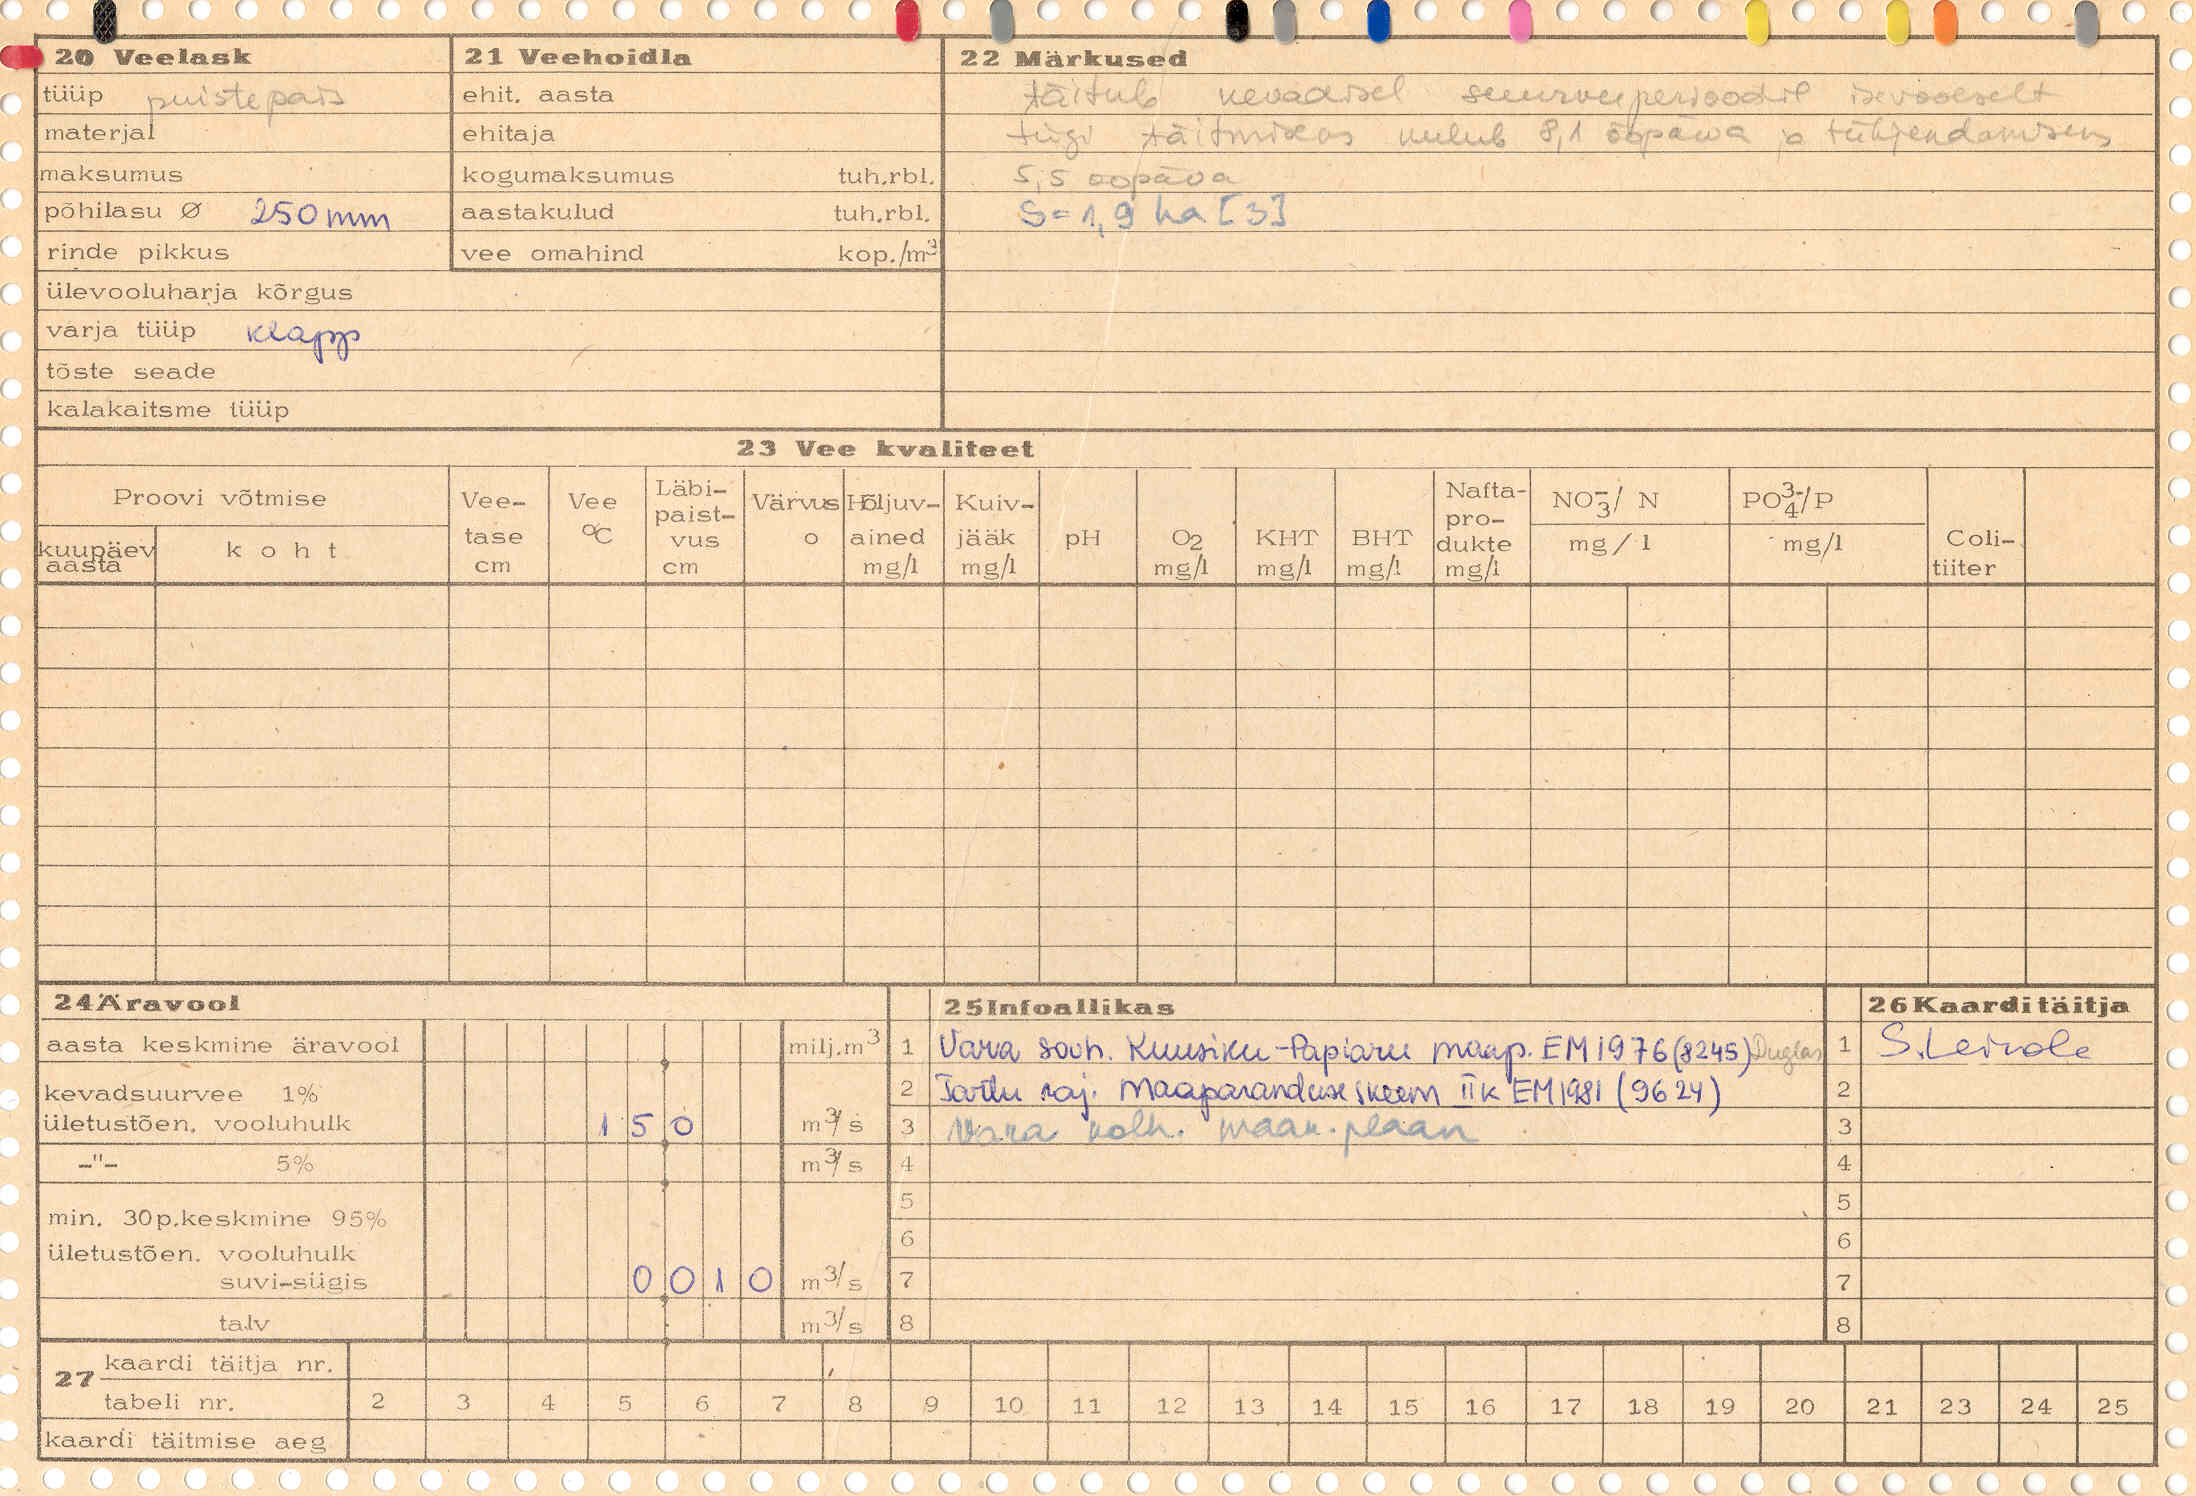 20 Veelask
tüüp puistepais
materjal
maksumus
põhilasu Ø 250mm
rinde pikkus
ülevooluharja kõrgus
varja tüüp klapp
tõste seade
kalakaitsme tüüp
21 Veehoidla
ehit. aasta
ehitaja
kogumaksumus tuh.rbl.
aastakulud tuh.rbl.
vee omahind kop./m3
22 Märkused
täitub kevadisel suurveeperioodil isevooluselt
tiigi täitmiseks kulub 8,1 ööpäeva ja tühjendamiseks
5,5 ööpäeva
S=1,9 ha [3]
23 Vee kvaliteet
Proovi võtmise
kuupäev
aasta
koht
Vee-
tase
cm
Vee
°C
Läbi-
paist-
vus
cm
Värvus
o
Hõljuv-
ained
mg/l
Kuiv-
jääk
mg/l
pH
O2
mg/l
KHT
mg/l
BHT
mg/l
Nafta-
pro-
dukte
mg/l
NO3-/ N
mg/l
PO4 3-/P
mg/l
Coli-
tiiter
24 Äravool
aasta keskmine äravool milj.m3
kevadsuurvee 1%
ületustõen. vooluhulk 1 5 0 m3/s
-"- 5% m3/s
min. 30p.keskmine 95%
ületustõen. vooluhulk
suvi-sügis 0 0 1 0 m3/s
talv m3/s
25 Infoallikas
1 Vara sovh. Kuusiku-Papiaru maap. EM 1976 (8245) Duglas
2 Tartu raj. Maaparanduse skeem II k EM 1981 (9624)
3 Vara kolh. maak. plaan
4
5
6
7
8
26 Kaarditäitja
1 S.Leivole
2
3
4
5
6
7
8
27 kaardi täitja nr.
tabeli nr. 2 3 4 5 6 7 8 9 10 11 12 13 14 15 16 17 18 19 20 21 23 24 25
kaardi täitmise aeg